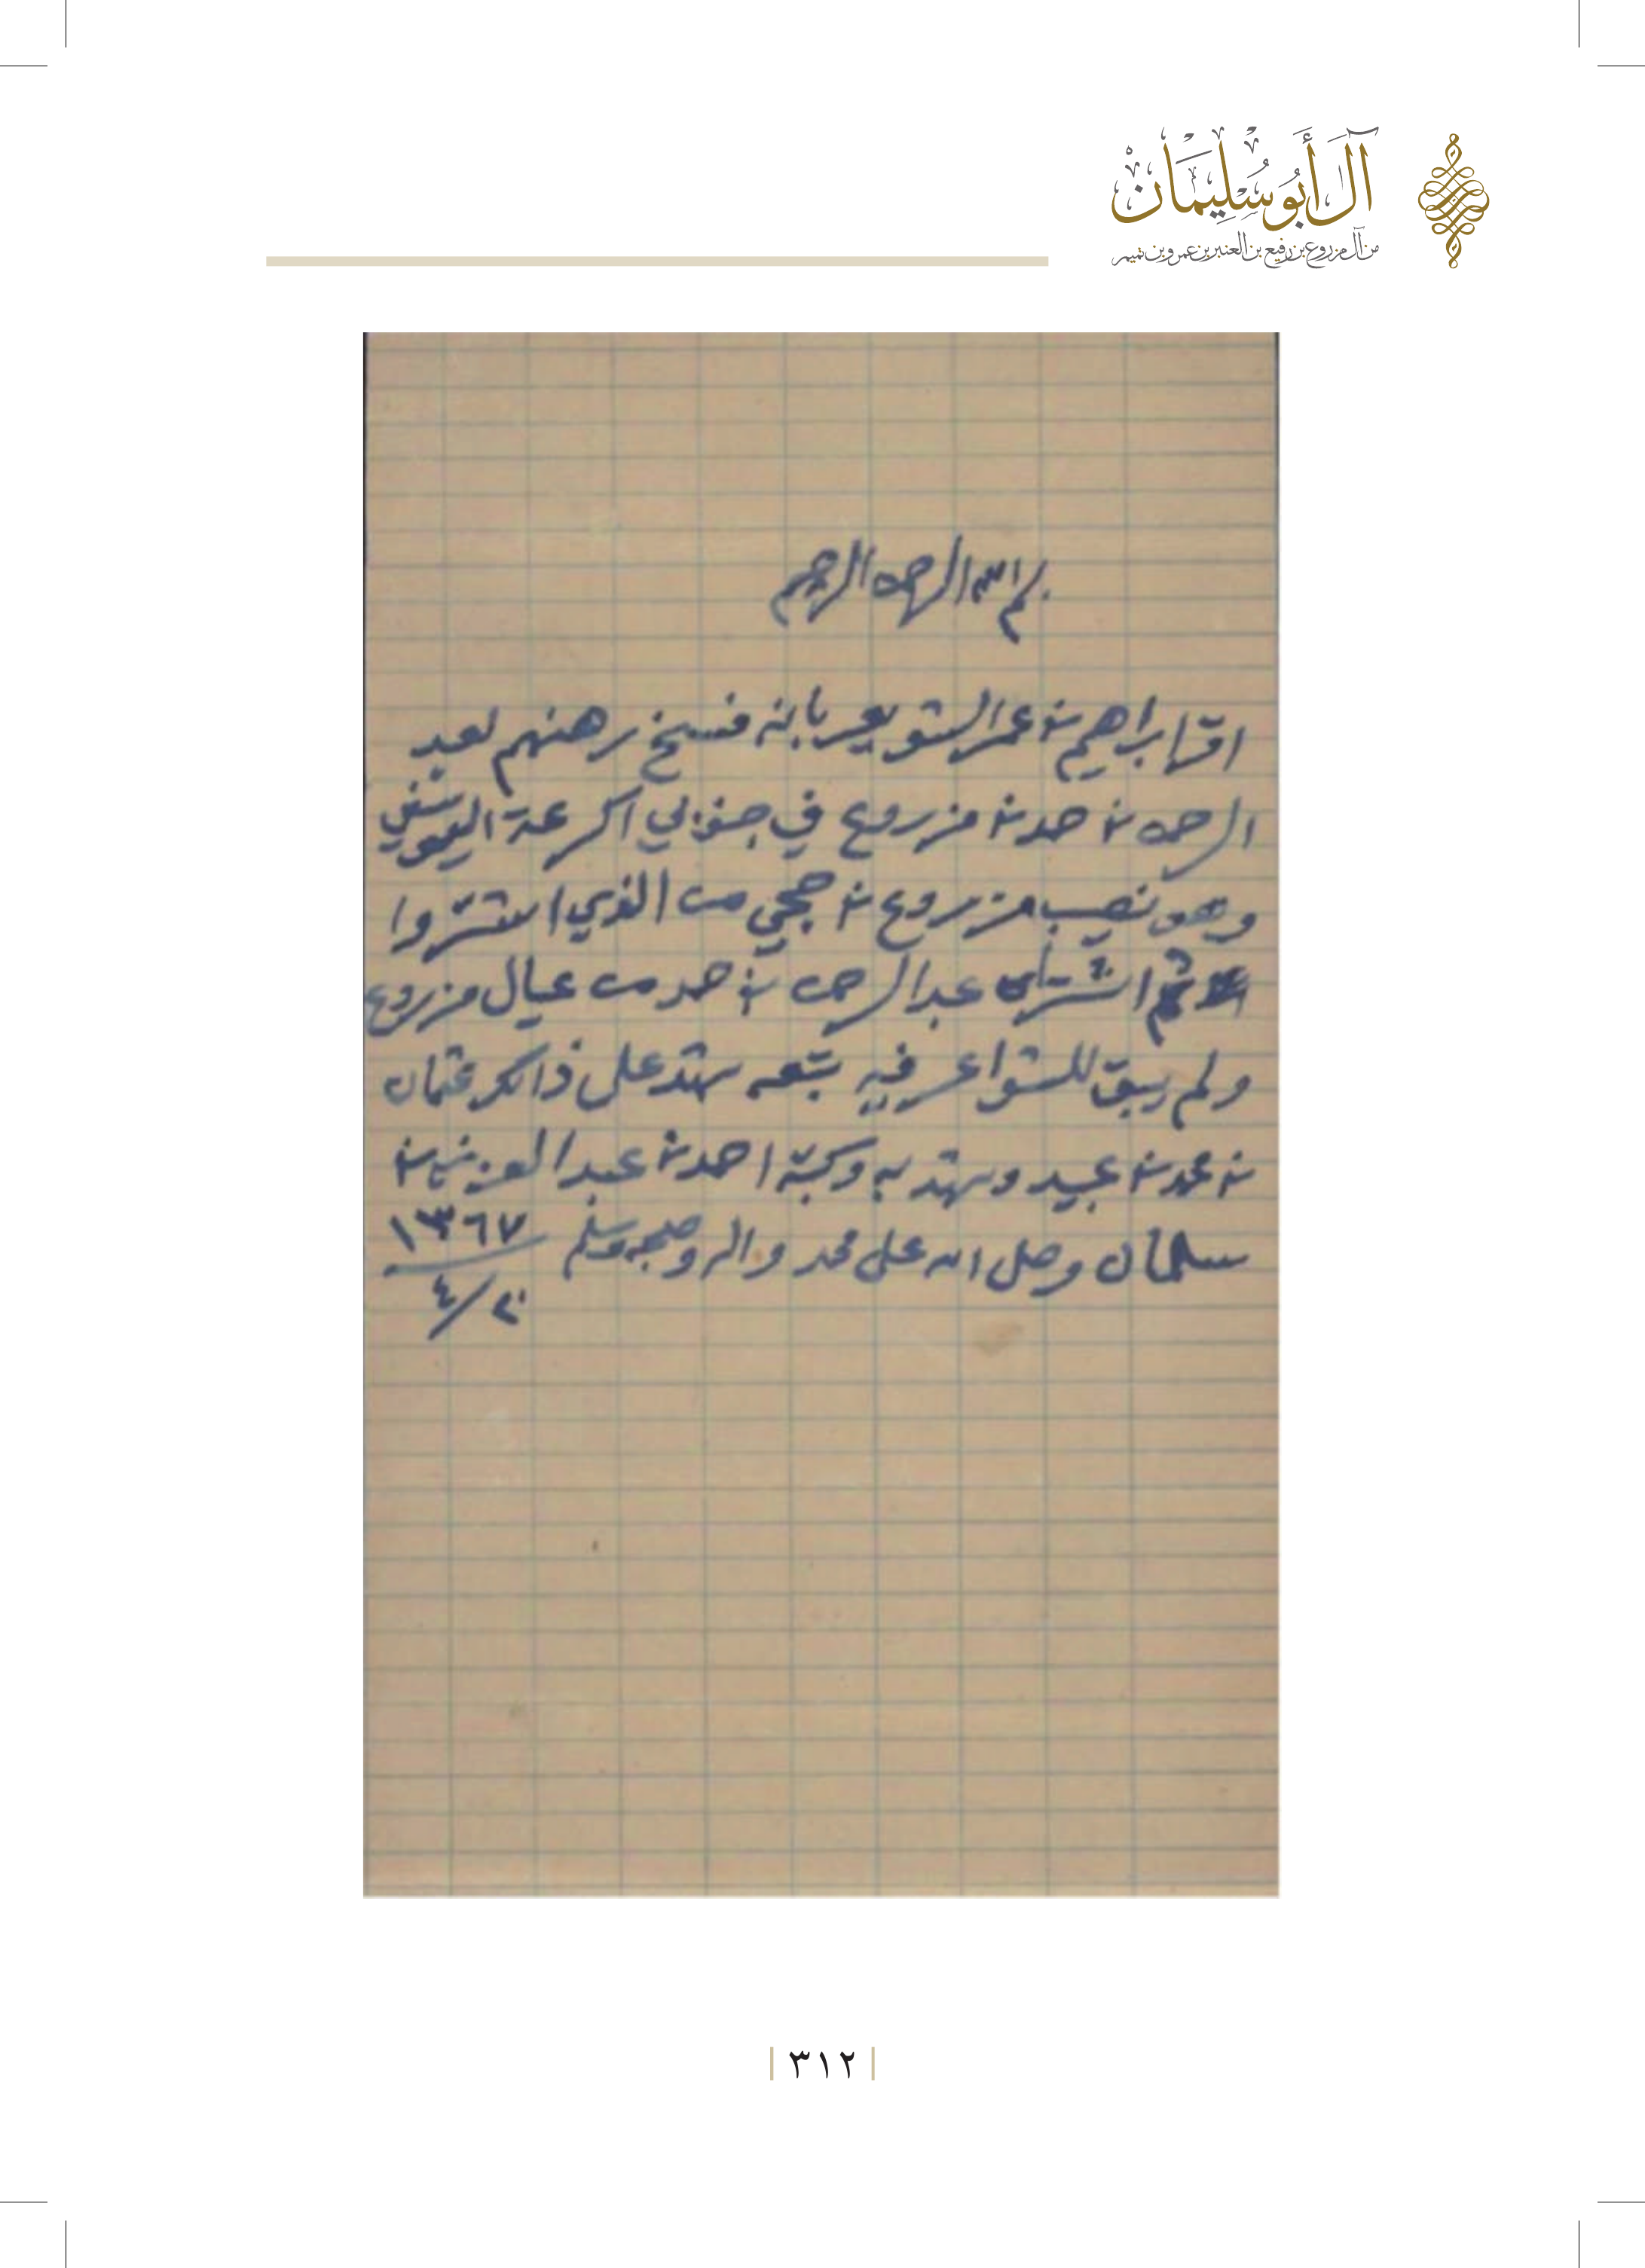 آل أبو سليمان
من آل مزروع بن رفيع بن العنبر بن عمرو بن تميم
بسم الله الرحمن الرحيم
اقر ابراهيم بن عمر الشويعر بانه فسخ رهنهم لعبد
الرحمن بن حمد بن مزروع في جنوبي اكرعة
وهو نصيب مزروع بن حجي من الذي اشتروا
ثم اشتراه عبد الرحمن بن حمد من عيال مزروع
ولم يبق للشواعر فيه تبعه شهد على ذالك عثمان
بن محمد بن عبيد وشهد به وكتبه احمد بن عبد العزيز بن
سلمان وصلى الله على محمد واله وصحبه وسلم ١٣٦٧
٢٠/٤
٣١٢